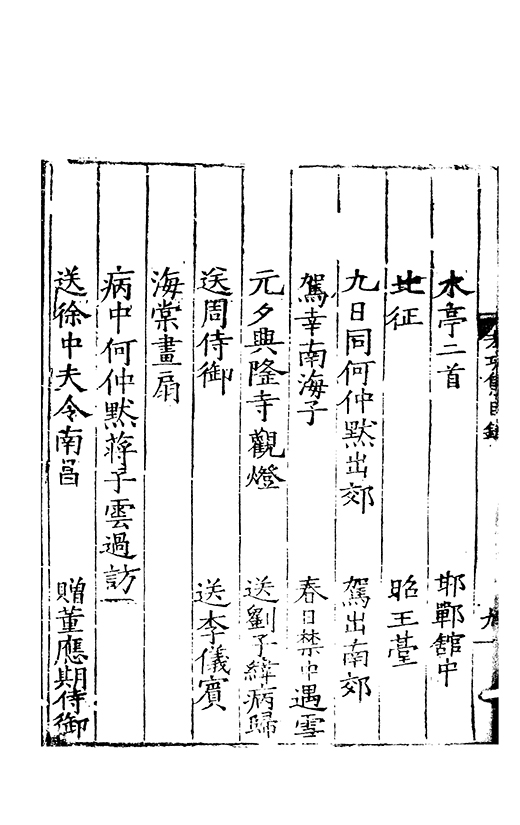 水亭二首 邯鄲館中
北征 昭王臺
九日同何仲默出郊 駕出南郊
駕幸南海子 春日禁中遇雪
元夕興隆寺觀燈 送劉子緯病歸
送周侍御 送李儀賓
海棠畫扇
病中何仲默蔣子雲過訪
送徐中夫令南昌 贈董應期侍御